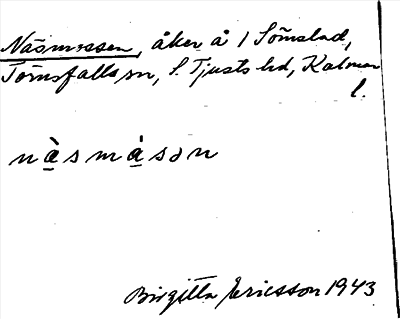 Näsmossen, åker å 1 Sömstad,
Törnsfalls sn, S. Tjusts hd, Kalmar
l.
nä̱små̱sən
Birgitta Ericsson 1943